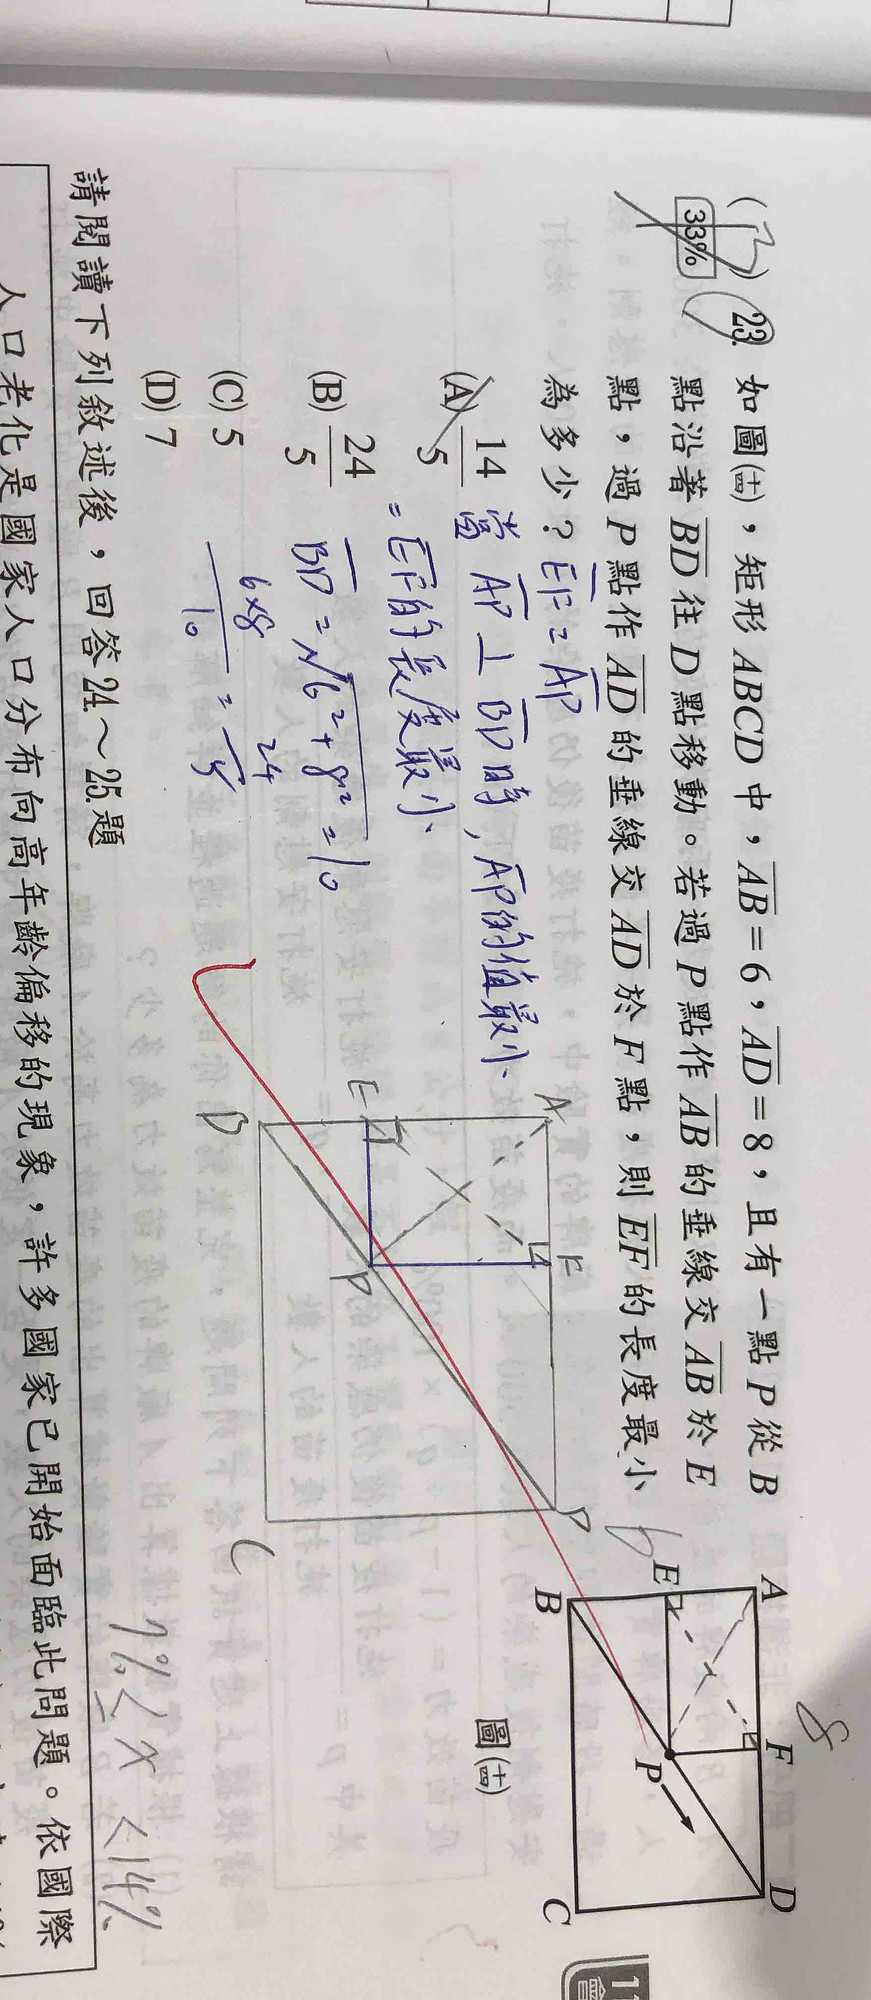 (B) 23. 如圖(十四)，矩形ABCD中，AB=6，AD=8，且有一點P從B
33% 點沿著BD往D點移動。若過P點作AB的垂線交AB於E
點，過P點作AD的垂線交AD於F點，則EF的長度最小
為多少？ EF=AP
(A) 14/5 當AP⊥BD時，AP的值最小
=EF的長度最小
(B) 24/5 BD=√6²+8²=10
(C) 5 6×8/10=24/5
(D) 7
A
F
E
P
B
D
C
A
F
D
E
P
B
C
6
8
圖(十四)
請閱讀下列敘述後，回答24.～25.題
7%< x <14%
人口老化是國家人口分布向高年齡偏移的現象，許多國家已開始面臨此問題。依國際